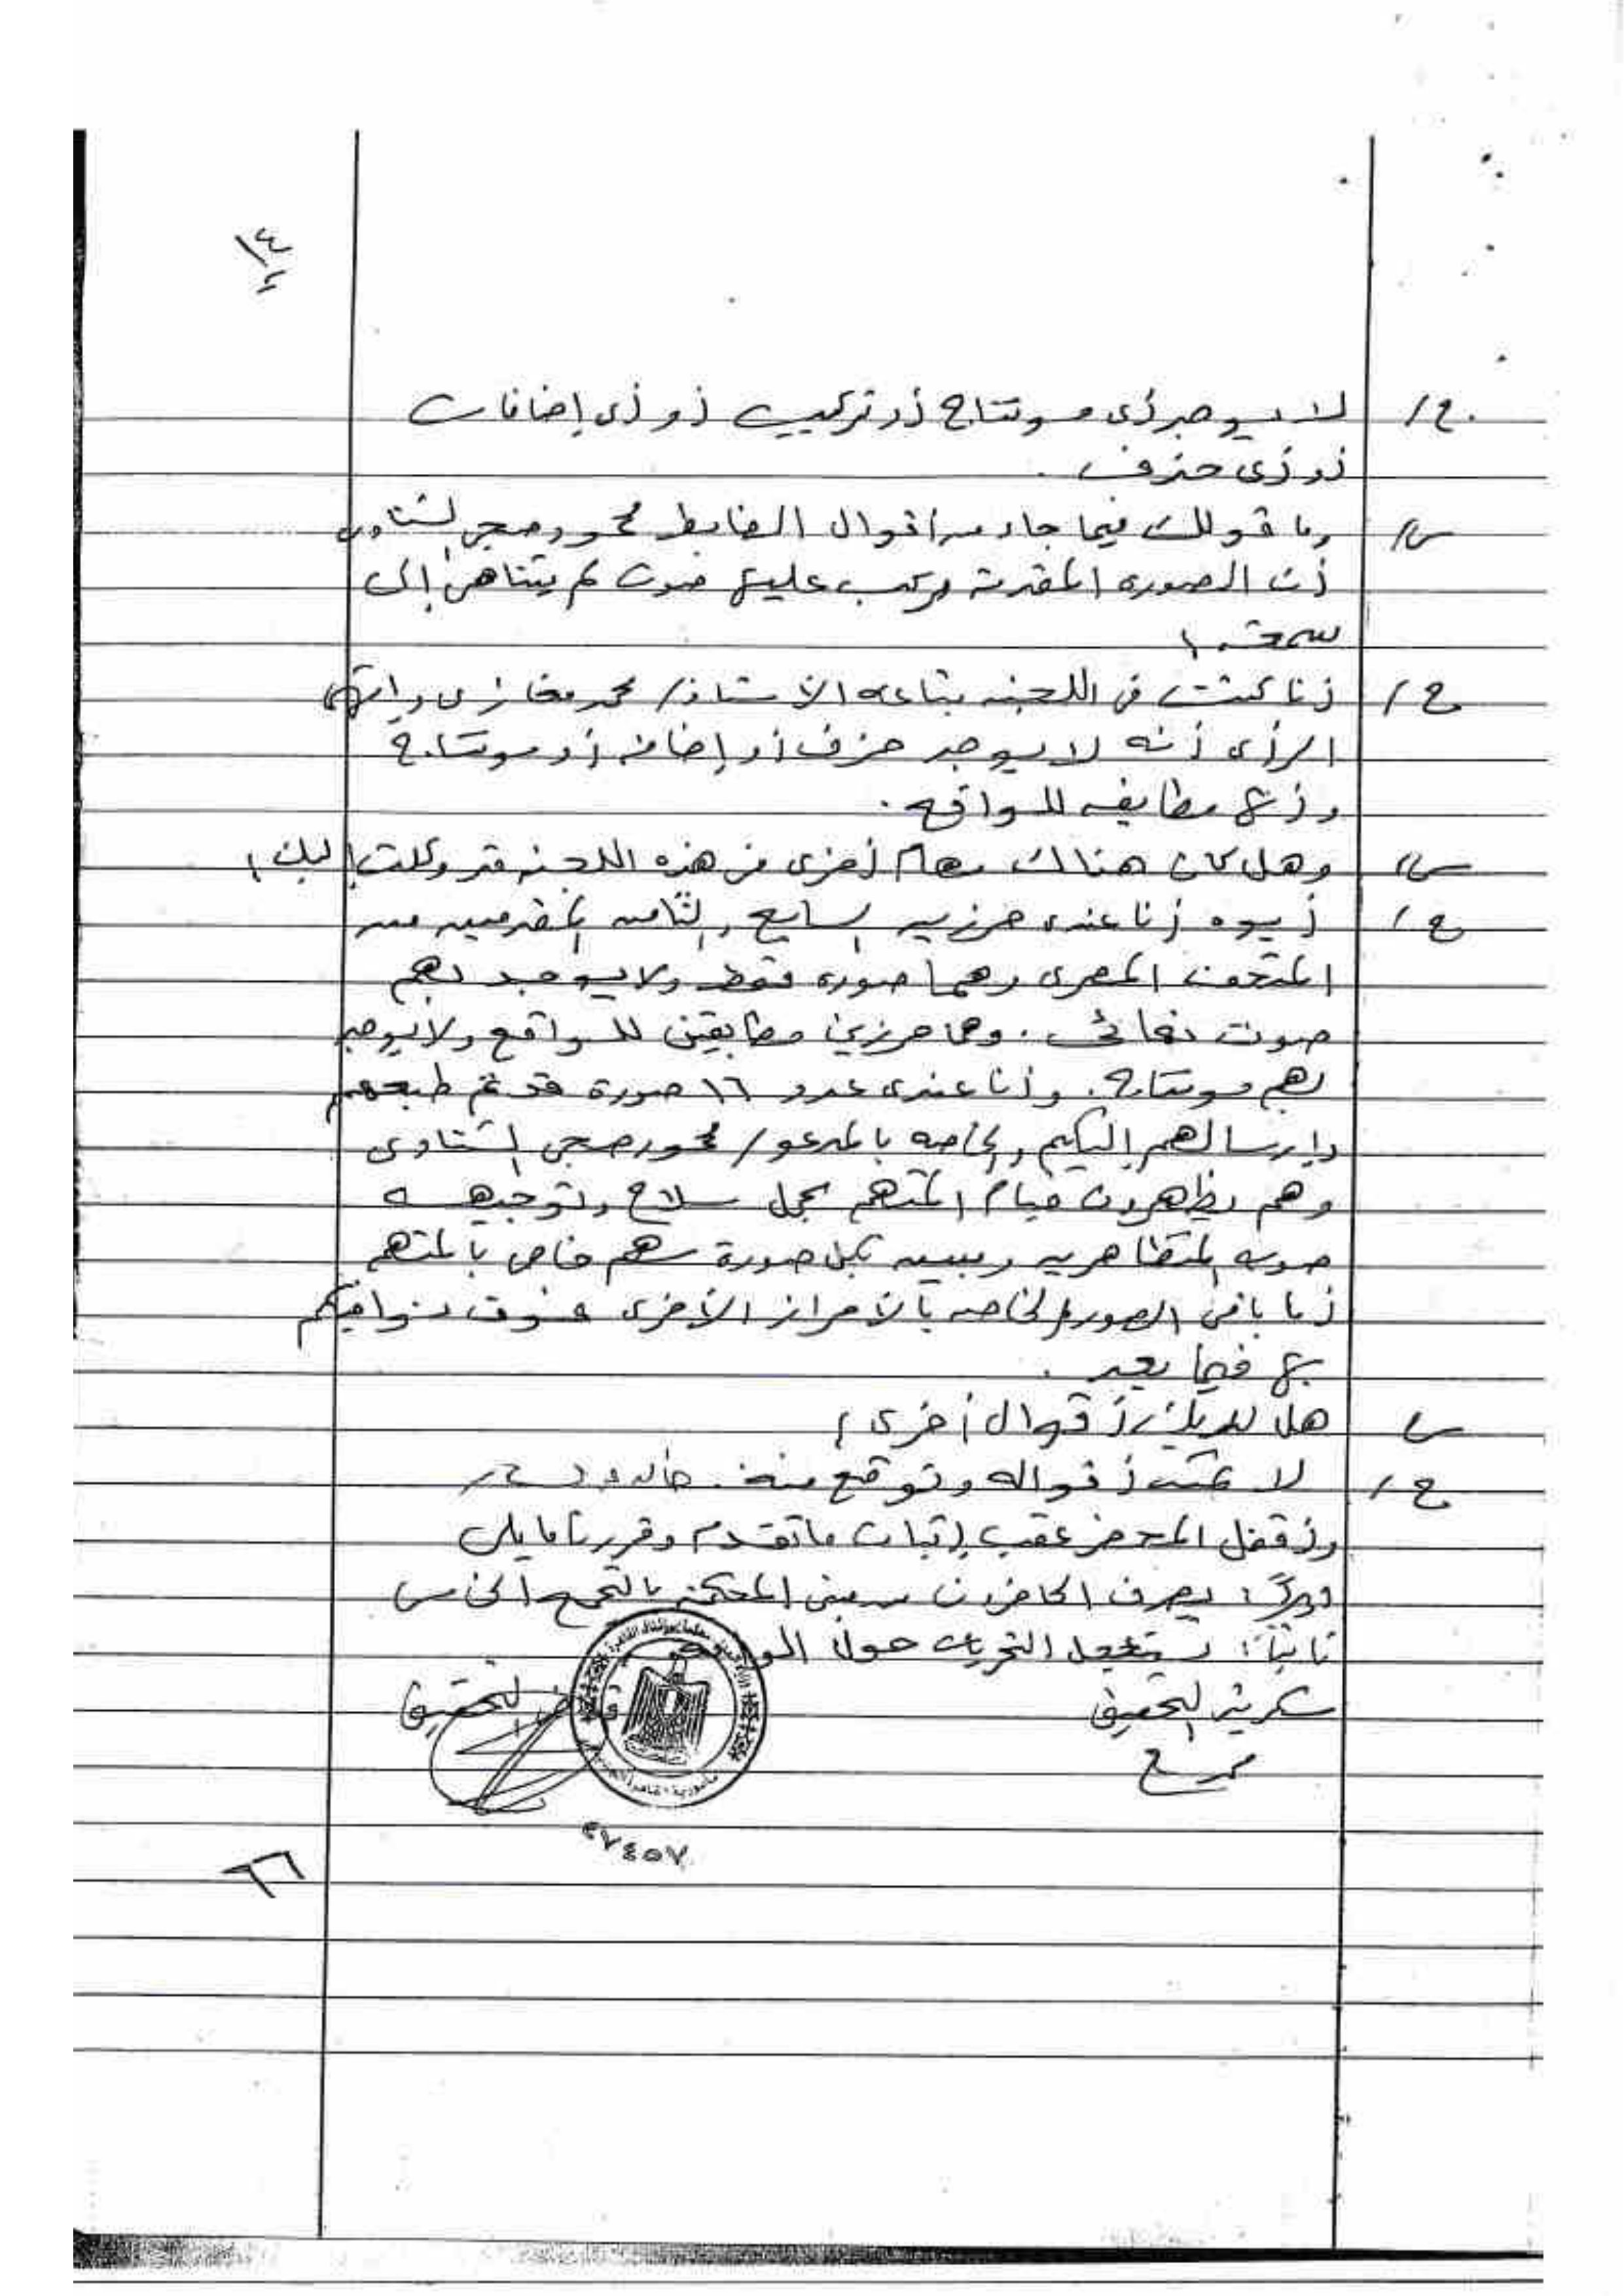 ١٤
ج/ لا يوجد أى مونتاج أو تركيب أو أى إضافات
أو أى حذف .
س/ وما قولك فيما جاء من أقوال الضابط محمود صبحى الشناوى
أن الصورة المقدمة مركب عليها صوت لم يتناهى إلى
سمعه ؟
ج/ أنا كنت فى اللجنه بتاعه الأستاذ/ محمد مغازى
الرأى أنه لا يوجد حذف أو إضافه أو مونتاج
وأنها مطابقه للواقع .
س/ وهل كان هناك مهام أخرى فى هذه اللجنه قد وكلت إليك ؟
ج/ أيوه أنا عندى حرزين السابع والثامن المقدمين من
المتحف المصرى وهما صوره فقط ولا يوجد بهم
صوت نهائى . وهما حرزين مطابقين للواقع ولا يوجد
بهم مونتاج . وأنا عندى عدد ١٦ صورة قد تم طبعهم
وإرسالهم إليكم والخاصه بالمدعو/ محمود صبحى الشناوى
وهم يظهرون قيام المتهم بحمل سلاح وتوجيهه
صوب المتظاهرين ومبين بكل صورة سهم خاص بالمتهم
أما باقى الصور الخاصه بالأحراز الأخرى سوف نوافيكم
بها فيما بعد .
س/ هل لديك أقوال أخرى ؟
ج/ لا تمت أقواله وتوقع منه .
وأقفل المحضر عقب إثبات ما تقدم وقررنا ما يلى
أولاً : يصرف الحاضرون من مبنى المحكمة بالتجمع الخامس
ثانياً : تستعجل التحريات حول
سكرتير التحقيق قاضى التحقيق
٦٦